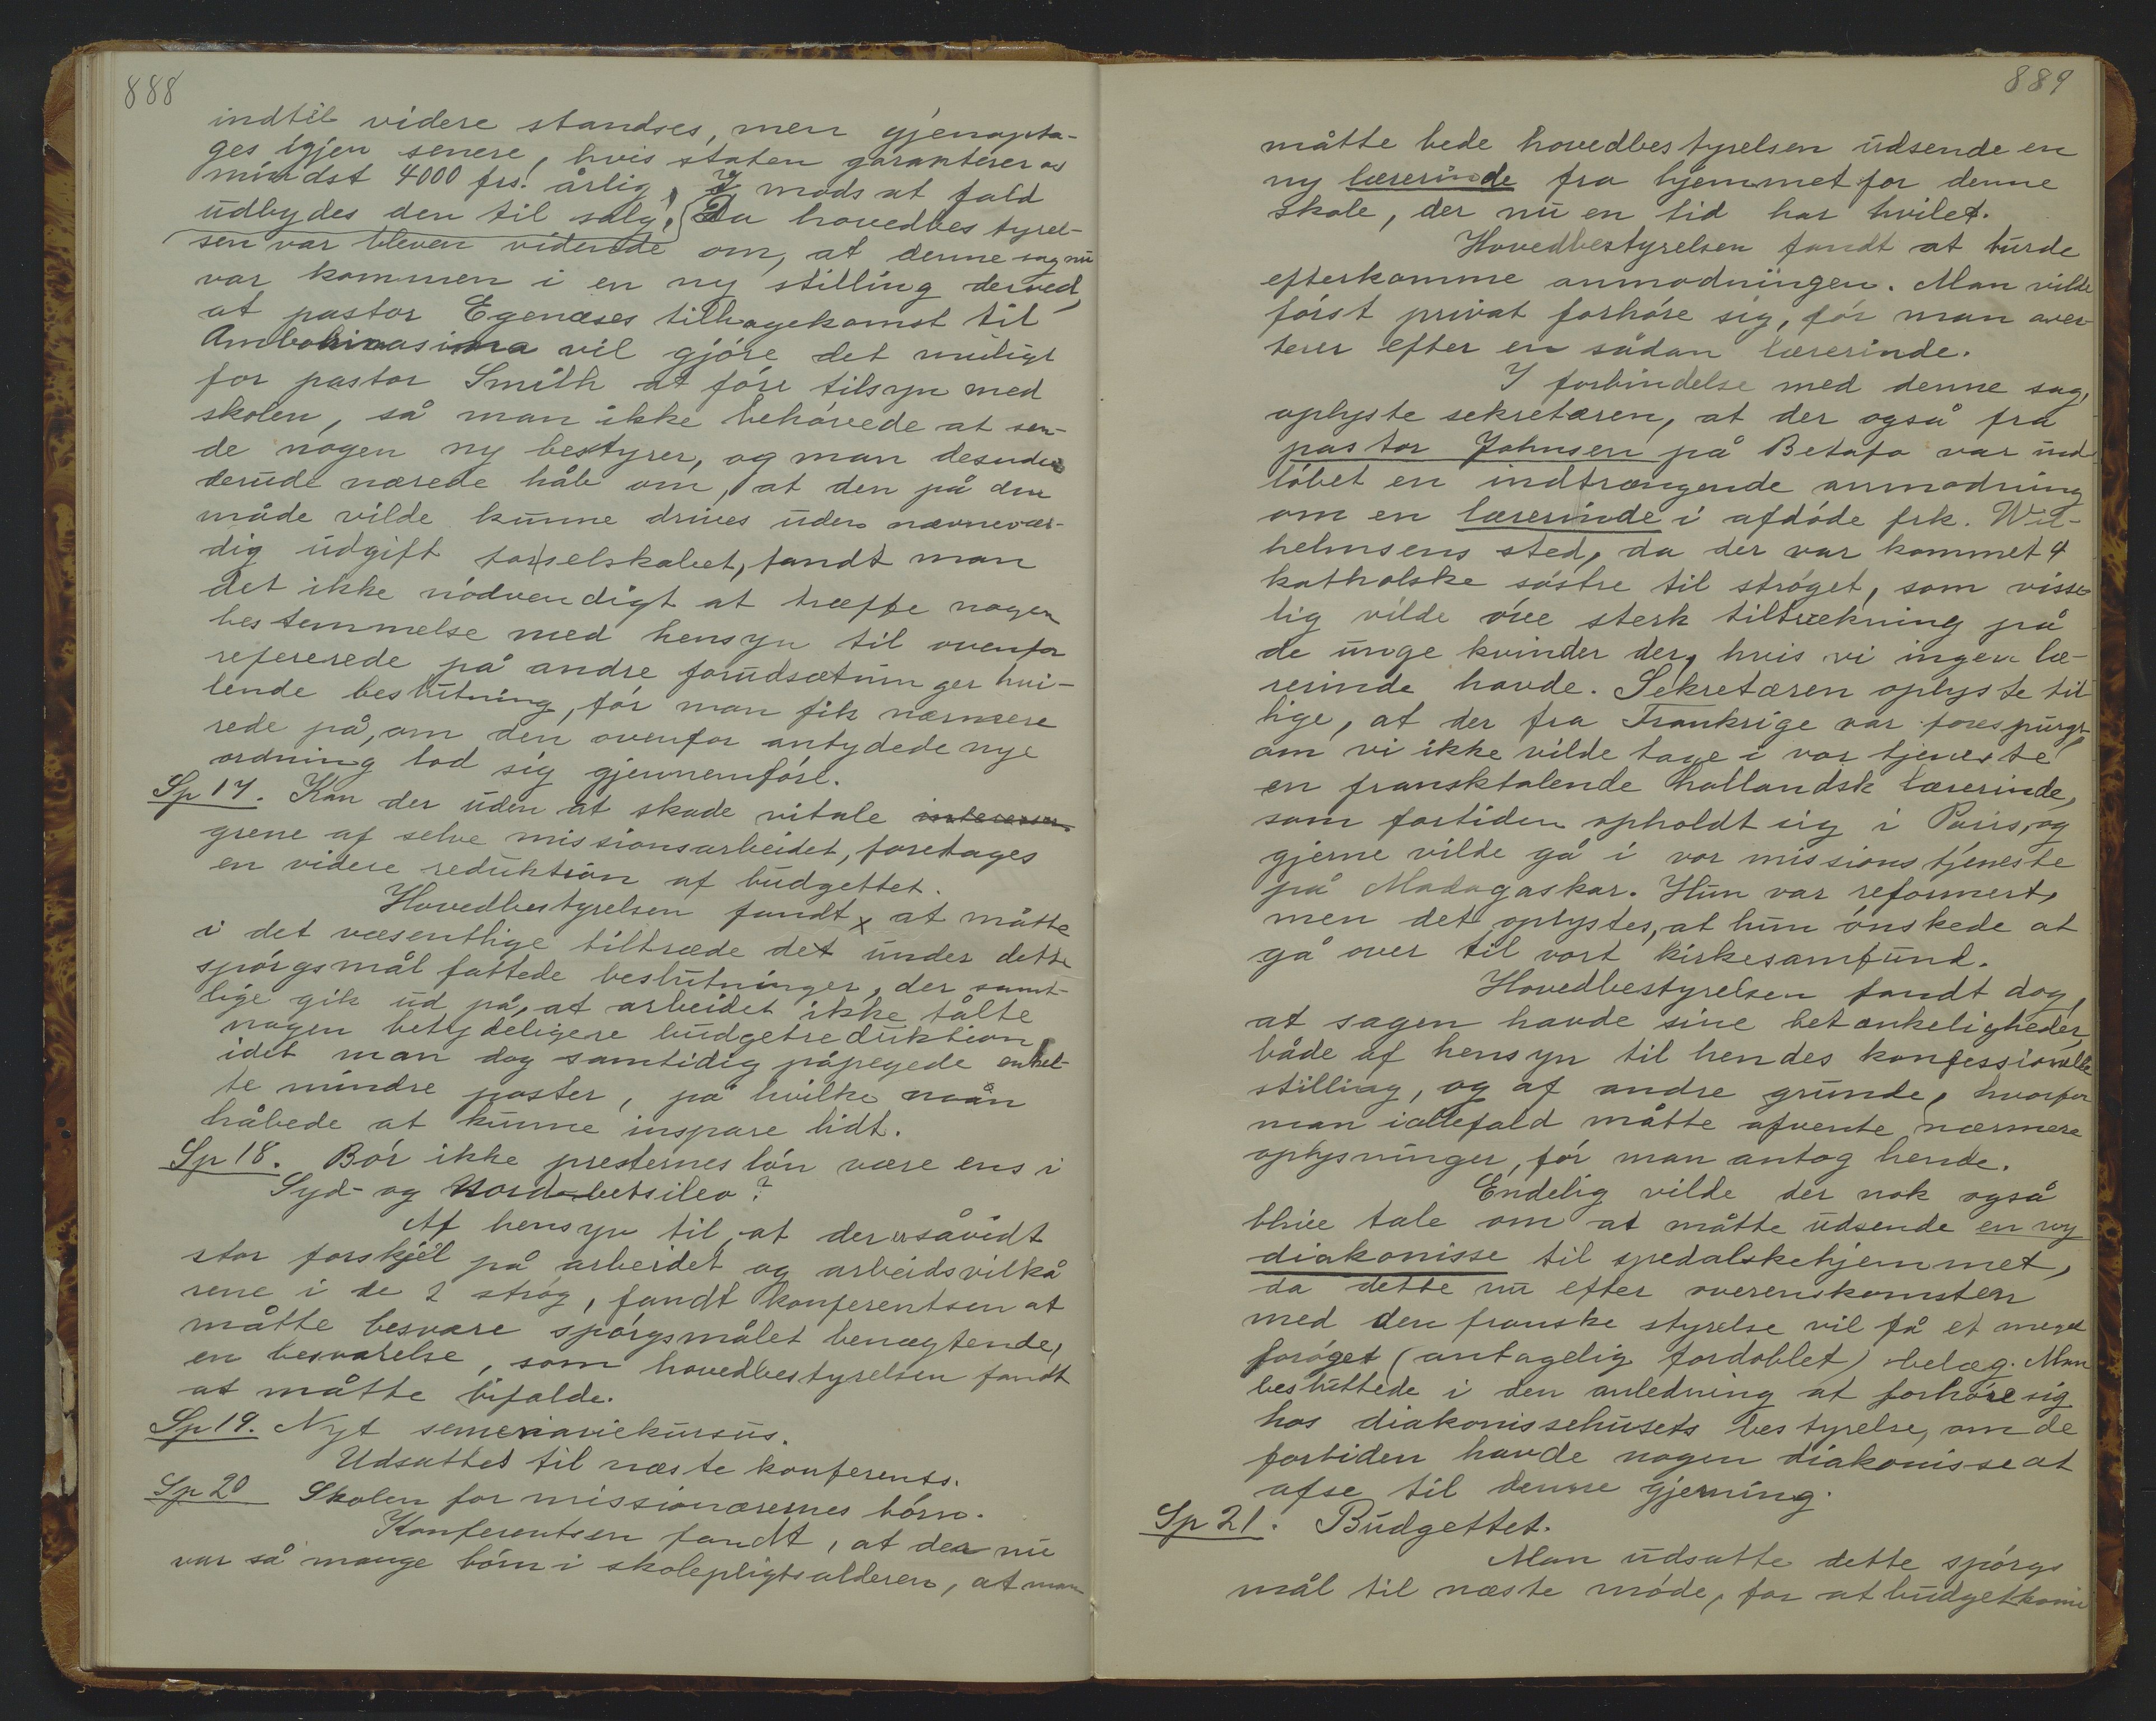 888
indtil videre standses, men gjenopta-
ges igjen senere, hvis staten garanterer os
mindst 4000 frs. årlig. I modsat fald
udbydes den til salg. Da hovedbestyrel-
sen var bleven vidende om, at denne sag nu
var kommen i en ny stilling derved,
at pastor Egenæses tilbagekomst til
Ambohimasina vil gjóre det muligt
for pastor Smith at fóre tilsyn med
skolen, så man ikke behóvede at sen-
de nogen ny bestyrer, og man desuden
derude nærede håb om, at den på den
måde vilde kunne drives uden nævnevær-
dig udgift for selskabet, fandt man
det ikke nódvendigt at træffe nogen
bestemmelse med hensyn til ovenfor
refererede på andre forudsætninger hvi-
lende beslutning, fór man fik nærmere
rede på, om den ovenfor antydede nye
ordning lod sig gjennemfóre.
Sp 17. Kan der uden at skade vitale interesser
grene af selve missionsarbeidet, foretages
en videre reduktion af budgettet.
Hovedbestyrelsen fandt x at måtte
i det væsentlige tiltræde det under dette
spórgsmål fattede beslutninger, der samt-
lige gik ud på, at arbeidet ikke tålte
nogen betydeligere budgetreduktion,
idet man dog samtidig påpegede enkel-
te mindre poster, på hvilke man
håbede at kunne inspare lidt.
Sp 18. Bór ikke presternes lón være ens i
Syd- og Nord-betsileo?
Af hensyn til, at der er såvidt
stor forskjel på arbeidet og arbeidsvilkå
rene i de 2 stróg, fandt konferentsen at
måtte besvare spórgsmålet benægtende,
en besvarelse, som hovedbestyrelsen fandt
at måtte bifalde.
Sp 19. Nyt semenariekursus.
Udsattes til næste konferents.
Sp 20 Skolen for missionærernes bórn.
Konferentsen fandt, at der nu
var så mange bórn i skolepligtsalderen, at man
889
måtte bede hovedbestyrelsen udsende en
ny lærerinde fra hjemmet for denne
skole, der nu en tid har hvilet.
Hovedbestyrelsen fandt at burde
efterkomme anmodningen. Man vilde
fórst privat forhóre sig, fór man aver-
terer efter en sådan lærerinde.
I forbindelse med denne sag,
oplyste sekretæren, at der også fra
pastor Johnsen på Betafo var ind-
lóbet en indtrængende anmodning
om en lærerinde i afdóde frk. Wil-
helmsens sted, da der var kommet 4
katholske sóstre til stróget, som visse-
lig vilde óve sterk tiltrækning på
de unge kvinder der, hvis vi ingen læ-
rerinde havde. Sekretæren oplyste til-
lige, at der fra Frankrige var forespurgt,
om vi ikke vilde tage i vor tjeneste
en fransktalende hollandsk lærerinde,
som fortiden opholdt sig i Paris, og
gjerne vilde gå i vor missionstjeneste
på Madagaskar. Hun var reformert,
men det oplystes, at hun ónskede at
gå over til vort kirkesamfund.
Hovedbestyrelsen fandt dog,
at sagen havde sine betænkeligheder,
både af hensyn til hendes konfessionelle
stilling, og af andre grunde, hvorfor
man iallefald måtte afvente nærmere
oplysninger, fór man antog hende.
Endelig vilde der nok også
blive tale om at måtte udsende en ny
diakonisse til spedalskehjemmet,
da dette nu efter overenskomsten
med den franske styrelse vil få et meget
forøget (antagelig fordoblet) belæg. Man
besluttede i den anledning at forhóre sig
hos diakonissehusets bestyrelse, om de
fortiden havde nogen diakonisse at
afse til denne gjerning.
Sp 21. Budgettet.
Man udsatte dette spórgs
mål til næste móde, for at budgetkomi